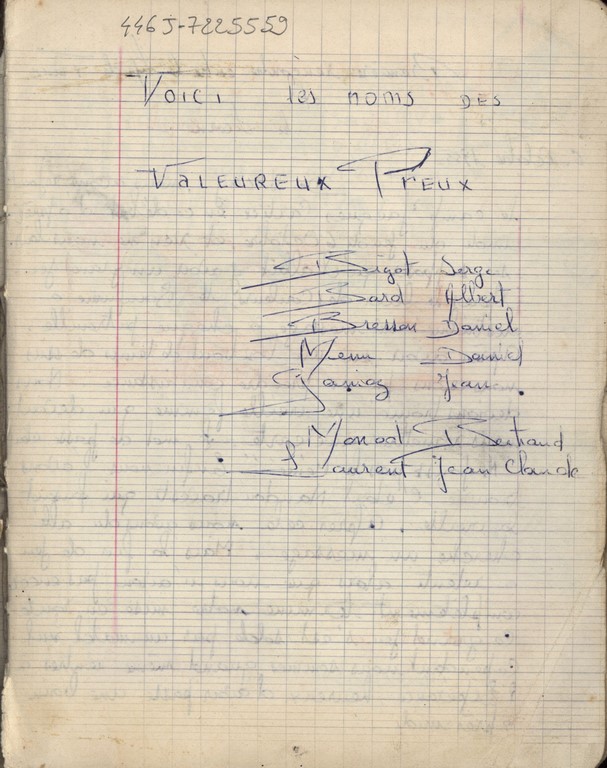 4465-7225559
Voici les noms des
Valeureux Preux
Bigot Serge
Bard Albert
Bresson Daniel
Menu Daniel
Jean.
Monod Bertrand
Laurent Jean Claude